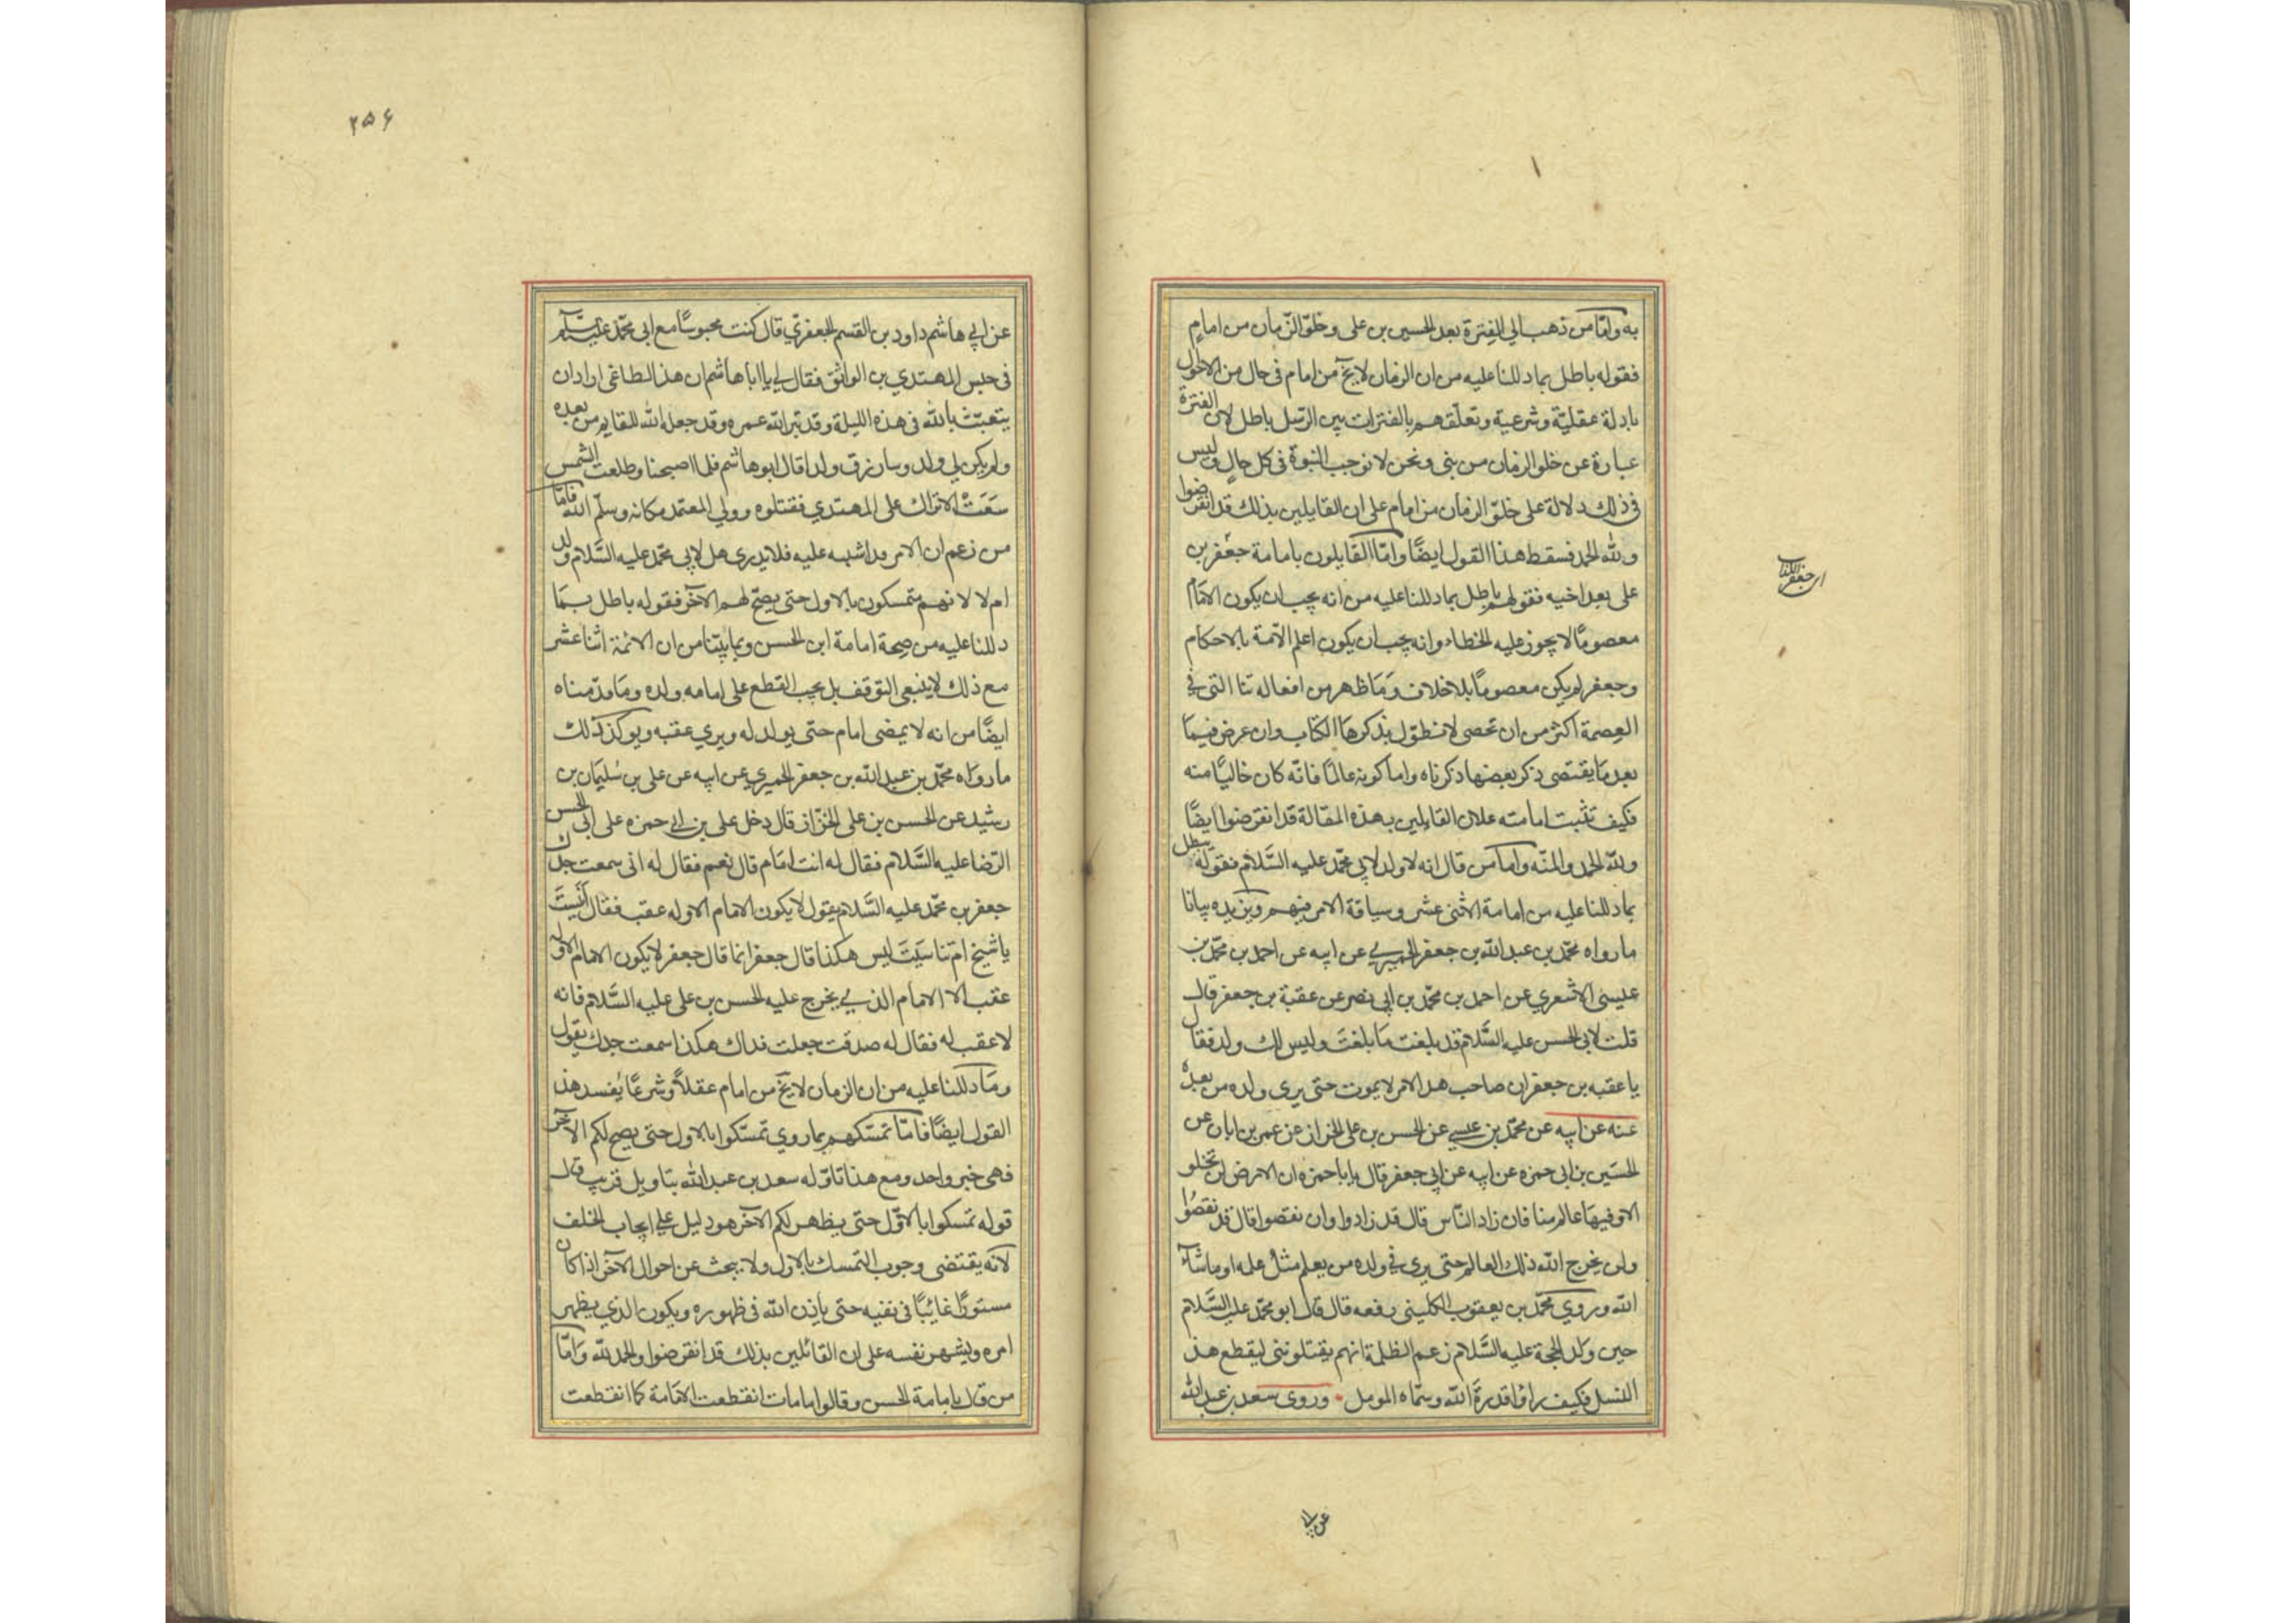 به واما من ذهب الي الفترة بعد الحسين بن على وخلوّ الزمان من امامٍ
فقوله باطل بما دللنا عليه من ان الزمان لا يخ من امام فى حال من الاحوال
بادلة عقليّة وشرعية وتعلّقهم بالفترات بين الرّسل باطل لان الفترة
عبارة عن خلو الزمان من نبى ونحن لا نوجب النبوة فى كل حالٍ وليس
فى ذلك دلالة على خلوّ الزمان من امام على ان القايلين بذلك قد انقرضوا
ولله الحمد فسقط هذا القول ايضًا وامّا القايلون بامامة جعفر بن
على بعد اخيه فقولهم باطل بما دللنا عليه من انه يجب ان يكون الامام
معصومًا لا يجوز عليه الخطاء وانه يجب ان يكون اعلم الامة بالاحكام
وجعفر لم يكن معصومًا بلا خلاف وما ظهر من افعاله التى في
العصمة اكثر من ان تحصى لا نطول بذكرها الكتاب وان عرض فيما
بعد ما يقتضى ذكر بعضها ذكرناه واما كونه عالمًا فانّه كان خاليًا منه
فكيف تثبت امامته علان القائلين بهذه المقالة قد انقرضوا ايضًا
ولله الحمد والمنّه واما من قال انه لا ولد لابي محمد عليه السَّلام فقوله يبطل
بما دللنا عليه من امامة الاثنى عشر وسياقة الامر فيهم ويزيده بيانا
ما رواه محمّد بن عبد الله بن جعفر الحميري عن ابيه عن احمد بن محمّد بن
عليسى الاشعري عن احمد بن محمّد بن ابى نصر عن عقبة بن جعفر قال
قلت لابى الحسن عليه السَّلام قد بلغت مَا بلغتَ وليس لك ولد فقال
يا عقبه بن جعفر ان صاحب هذا الامر لا يموت حتى يرى ولده من بعدهُ
عنه عن ابيه عن محمّد بن عيسي عن الحسن بن على الخزاز عن عمر بن ابان عن
الحسَين بن ابى حمزه عن ابيه عن ابى جعفر قال يا ابا حمزه ان الارض لن تخلو
الا وفيهَا عالم منا فان زاد النّاس قال قد زادوا وان نقصوا قال قد نقصُوا
ولن يخرج الله ذلك العالم حتى يرى في ولده من يعلم مثل علمه او ما شآء
الله وروي محمّد بن يعقوب الكلينى رفعه قال قال ابو محمّد عليه السَّلام
حين ولد الحجة عليه السَّلام زعم الظلمة انهم يقتلوننى ليقطع هذ
النسل فكيف راوا قدرة الله وسمّاه المومل وروى سعد بن عبد الله
ان جعفر الكذاب
عن ابي
٢٥۶
عن ابي هاشم داود بن القسم الجعفري قال كنت محبوسًا مع ابى محمّد عليه السّلم
فى حبس المهتدي بن الواثق فقال لي يا ابا هاشم ان هذا الطاغى اراد ان
يتعبّث بالله فى هذه الليلة وقد بتر الله عمره وقد جعله الله للقايم من بعده
ولم يكن لي ولد وسارزق ولدا قال ابو هاشم فلما اصبحنا وطلعت الشمس
سَعَتْ الاتراك على المهتدي فقتلوه وولي المعتمد مكانه وسلّم الله فامّا
من زعم ان الامر قد اشتبه عليه فلا يدرى هل لابي محمّد عليه السَّلام ولد
ام لا لانهم متمسكون بالاول حتى يصحّ لهم الآخر فقوله باطل بمَا
دللنا عليه من صِحة امامة ابن الحسن وبما بيّنا من ان الائمة اثنا عشر
مع ذلك لا ينبغى التوقف بل يجب القطع على امامه ولده ومَا قدّمناه
ايضًا من انه لا يمضى امام حتى يولد له ويري عقبه ويوكد ذلك
ما رواه محمّد بن عبد الله بن جعفر الحميري عن ابيه عن على بن سُليمَان بن
رشيد عن الحسن بن على الخزّاز قال دخل على بن ابي حمزه على ابى الحسن
الرّضا عليه السَّلام فقال له انت امَام قال نعم فقال له انى سمعت جدك
جعفر بن محمّد عليه السَّلام يقول لا يكون الامام الا وله عقب فقال أنَسِيتَ
يا شيخ ام تناسَيتَ ليس هكذا قال جعفر انما قال جعفر لا يكون الامام الا وله
عقب الا الامَام الذي يخرج عليه الحسن بن على عليه السَّلام فانه
لا عقب له فقال له صدقت جعلت فداك هكذا سمعت جدك يقول
ومَا دللنا عليه من ان الزمان لا يخ من امام عقلاً وشرعًا يُفسد هذ
القول ايضًا فامّا تمسّكهم بما روي تمسّكوا بالاول حتى يصح لكم الآخر
فهى خبر واحد ومع هذا تاوّله سعد بن عبد الله بتاويل قريب قال
قوله تمسكوا بالاوّل حتى يظهر لكم الآخر هو دليل علي ايجاب الخلف
لانه يقتضى وجوب التمسك بالاول ولا يبحث عن احوال الآخر اذا كان
مستورًا غائبًا فى تقيه حتى ياذن الله فى ظهوره ويكون الذي يظهر
امره ويشهر نفسه على ان القائلين بذلك قد انقرضوا والحمد لله وَامّا
من قال بامامة الحسن وقالوا مامات انقطعت الامَامة كما انقطعت